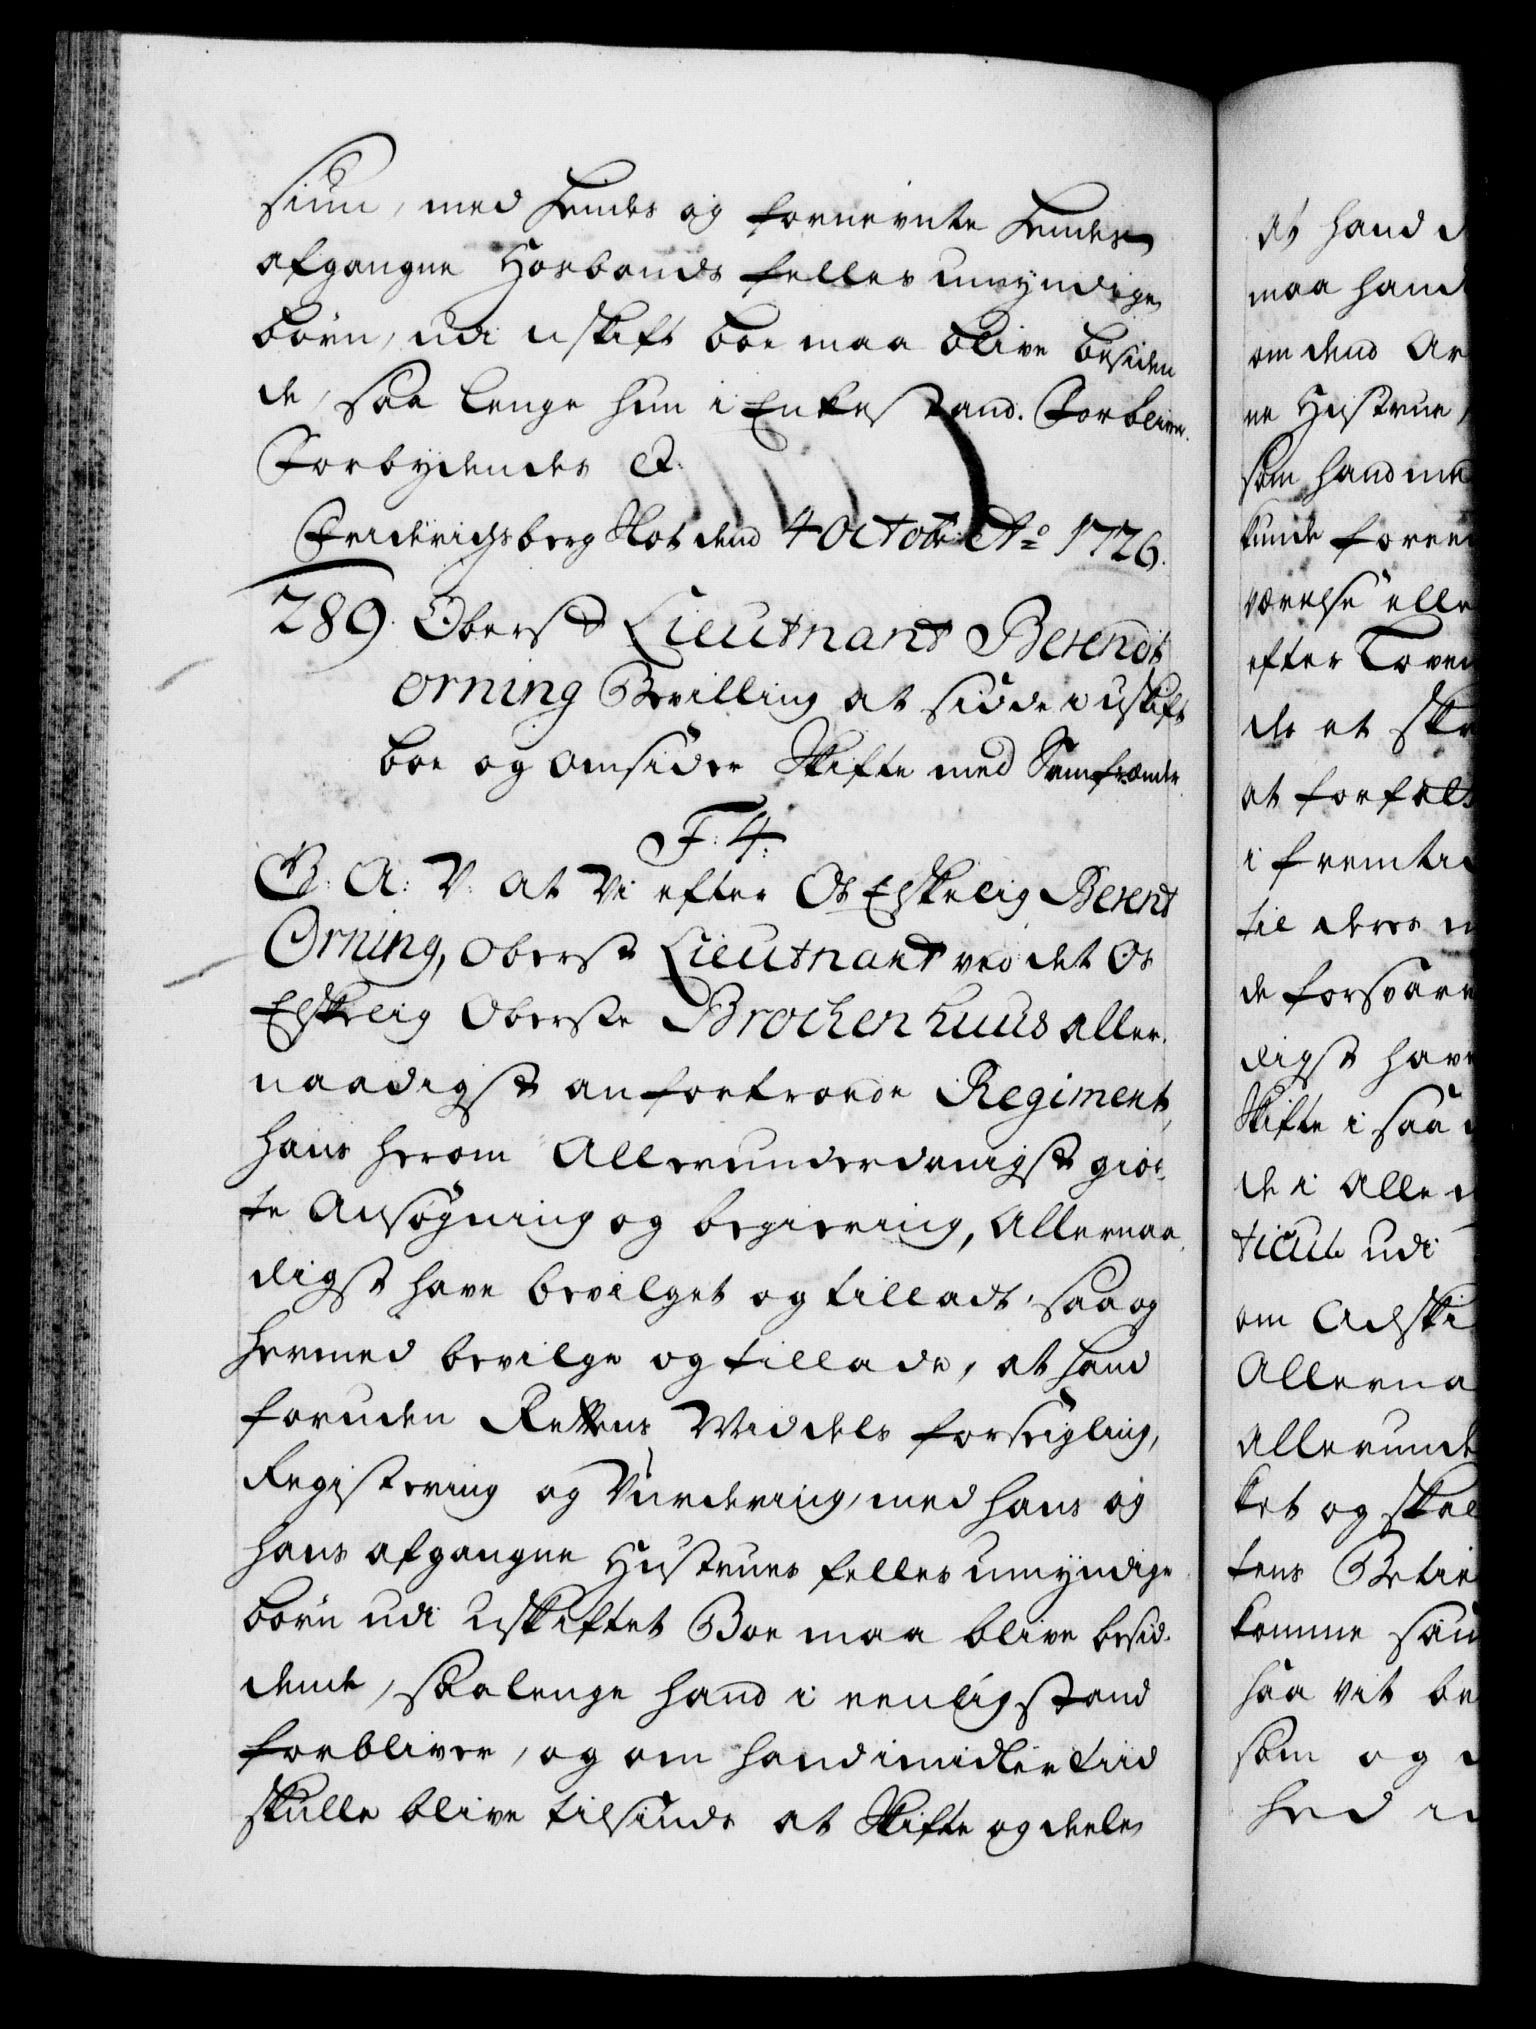 sinn, med hendes og fornevnte hendes
afgangne Hosbonds felles umyndige
børn, udi uskift boe maa blive besiden
de, saa lenge hun i Enkestand. Forbliver.
Forbydendes &.
Friderichsberg Slot dend 4 Octobr: Ao 1726.
289. Oberst Lieutnant Berendt
Orning Bevilling at sidde i uskift
boe og omsider Skifte med Samfrænder.
F: 4:
G: A: V: at Vi efter Os Elskelig Berent
Orning, Oberst Lieutnant ved det Os
Elskelig Oberste Brochenhuus aller-
naadigst anfortroede Regiment,
hans herom Allerunderdanigst giør-
te Ansøgning og begiering, Allernaa-
digst have bevilget og tilladt, saa og
hermed bevilge og tillade, at hand
foruden Rettens Middels forseigling,
Registering og Vurdering, med hans og
hans afgangne Hustrues felles umyndige
børn udi Uskiftet Boe maa blive besid-
dende, saa lenge hand i eenlig stand
forbliver, og om hand imidlertiid
skulle blive tilsinds at Skifte og deele
at hand
maa hand
om dend
ne Hustrue,
som hand med
kunde
værelse elle
efter Loven
de et
at
i fremtid
til deres
de forsvare
digst have
Skifte i saa
de i Alle
ticul udi
om
Allerna
allerunde
ket og skal
tens
komme
saa vit be
som og
hed